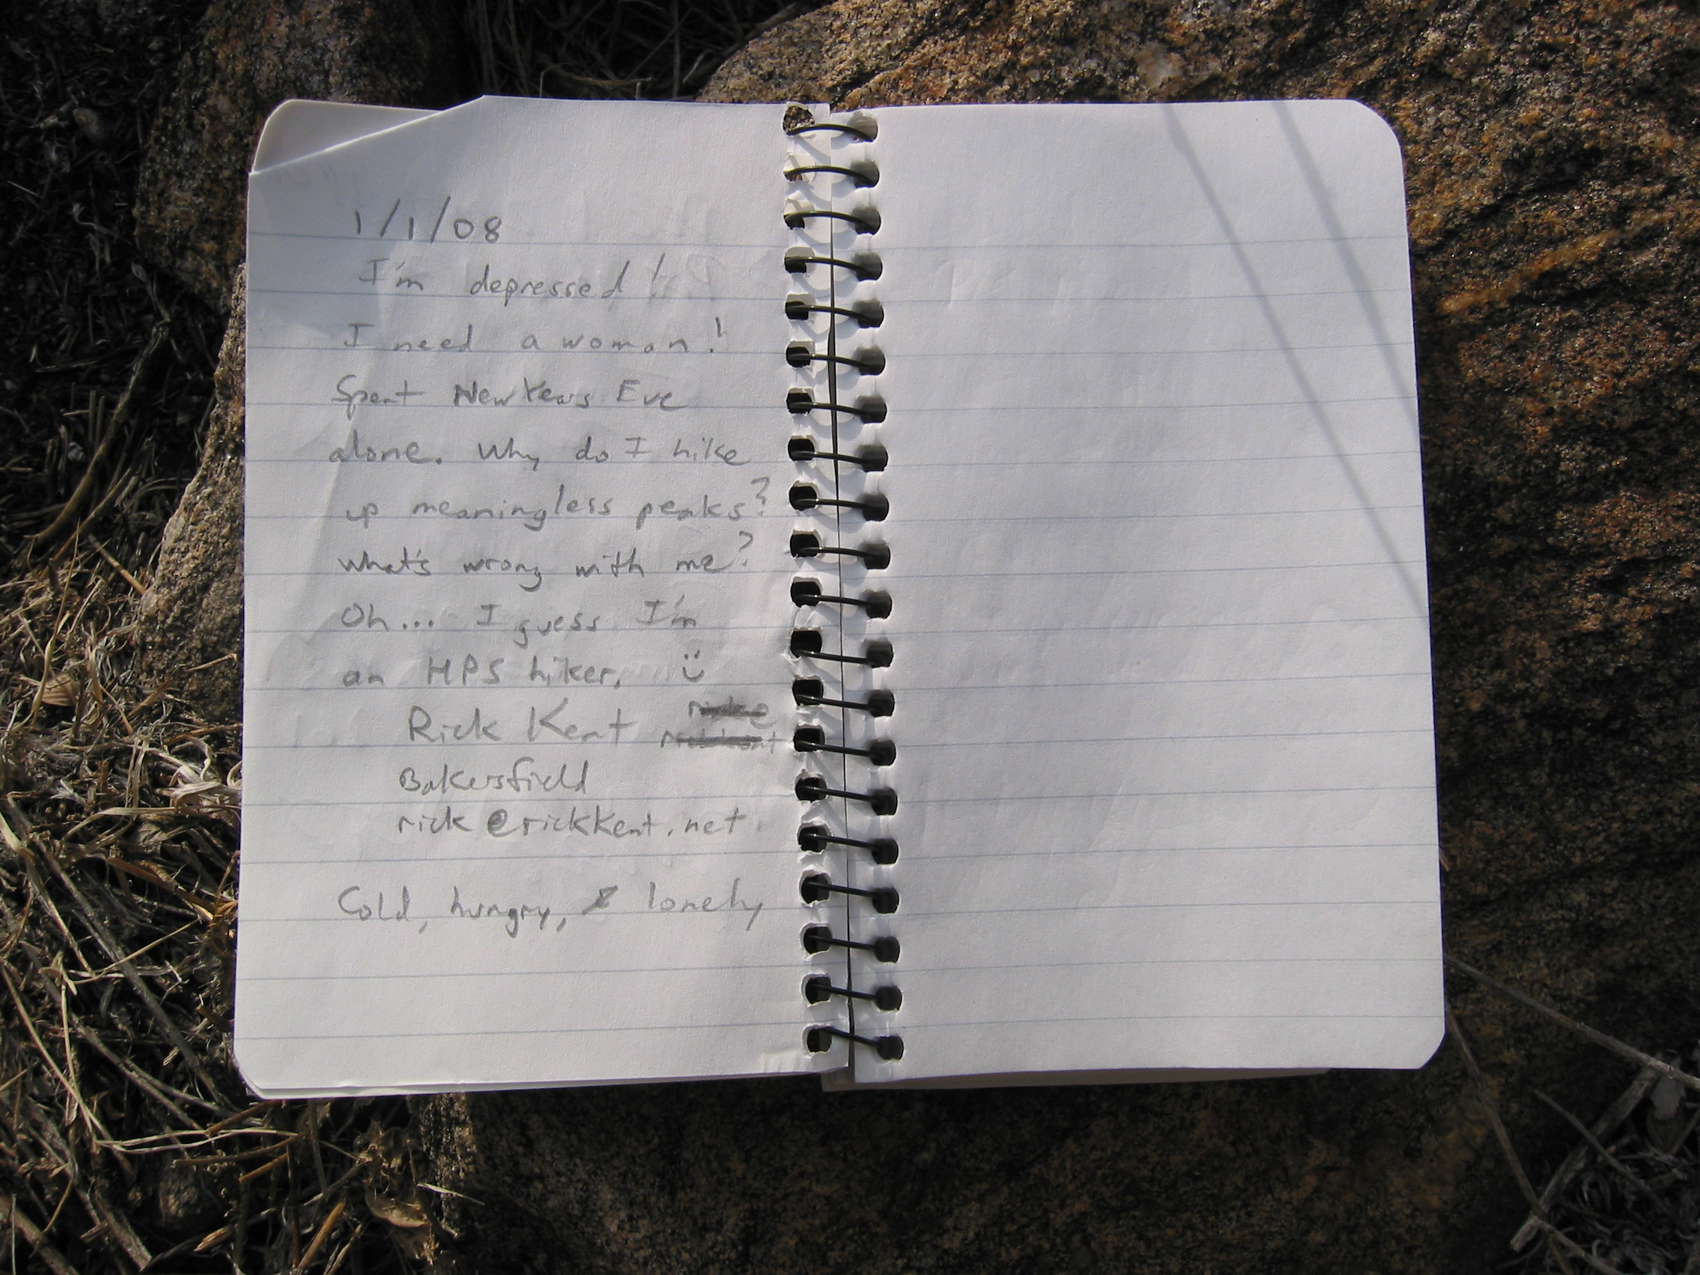 1/1/08
I'm depressed!
I need a woman!
Spent New Years Eve
alone. Why do I hike
up meaningless peaks?
what's wrong with me?
Oh... I guess I'm
an HPS hiker. :)
Rick Kent
Bakersfield
rick@rickkent.net
Cold, hungry, & lonely